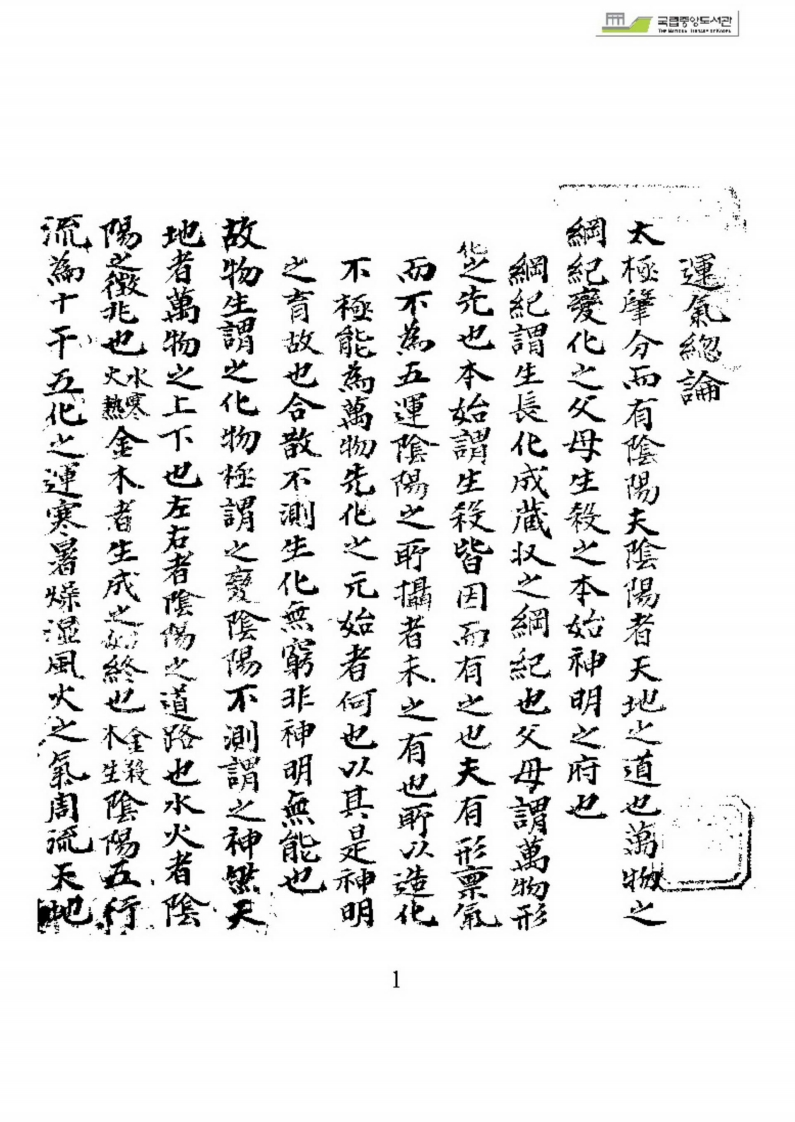 국립중앙도서관
THE NATIONAL LIBRARY OF KOREA
運氣総論
太極肇分而有陰陽夫陰陽者天地之道也萬物之
綱紀變化之父母生殺之本始神明之府也
綱紀謂生長化成蔵収之綱紀也父母謂萬物形
化之先也本始謂生殺皆因而有之也夫有形禀氣
而不為五運陰陽之所攝者未之有也所以造化
不極能為萬物先化之元始者何也以其是神明
之育故也合散不測生化無窮非神明無能也
故物生謂之化物極謂之變陰陽不測謂之神然天
地者萬物之上下也左右者陰陽之道路也水火者陰
陽之徴兆也水寒火熱金木者生成之始終也金殺木生陰陽五行
流為十干五化之運寒暑燥湿風火之氣周流天地
1